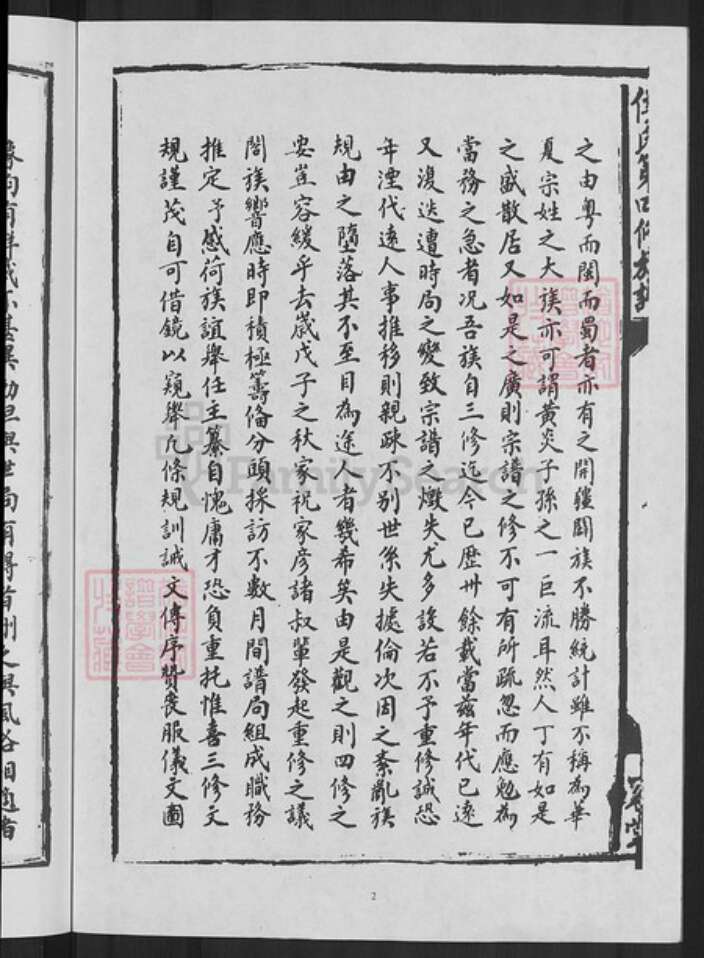 之由粵而閩而蜀者亦有之開疆闢族不勝統計雖不稱為華
夏宗姓之大族亦可謂黃炎子孫之一巨流耳然人丁有如是
之盛散居又如是之廣則宗譜之修不可有所疏忽而應勉為
當務之急者況吾族自三修迄今已歷卅餘載當茲年代已遠
又復迭遭時局之變致宗譜之燬失尤多設若不予重修誠恐
年湮代遠人事推移則親疎不別世系失據倫次因之紊亂族
規由之墮落其不至目為途人者幾希矣由是觀之則四修之
安豈容緩乎去歲戊子之秋家祝家彥諸叔輩發起重修之議
閤族響應時即積極籌備分頭採訪不數月間譜局組成職務
推定予感荷族誼舉任主纂自愧庸才恐負重托惟喜三修文
規謹茂自可借鏡以窺舉凡條規訓誡文傳序贊喪服儀文圖
氏第四修族譜
FamilySearch
2